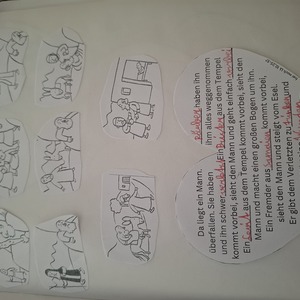 Da liegt ein Mann. Räuber haben ihn
überfallen. Sie haben ihn alles weggenommen
und ihn schwer verletzt. Ein Priester aus dem Tempel
kommt vorbei, sieht den Mann und geht einfach
Ein Levit aus dem Tempel kommt vorbei, sieht den
Mann und macht einen großen Bogen um ihn.
Ein Fremder aus Samarien kommt vorbei,
sieht den Mann und steigt vom Esel.
Er gibt dem Verletzten zu trinken und